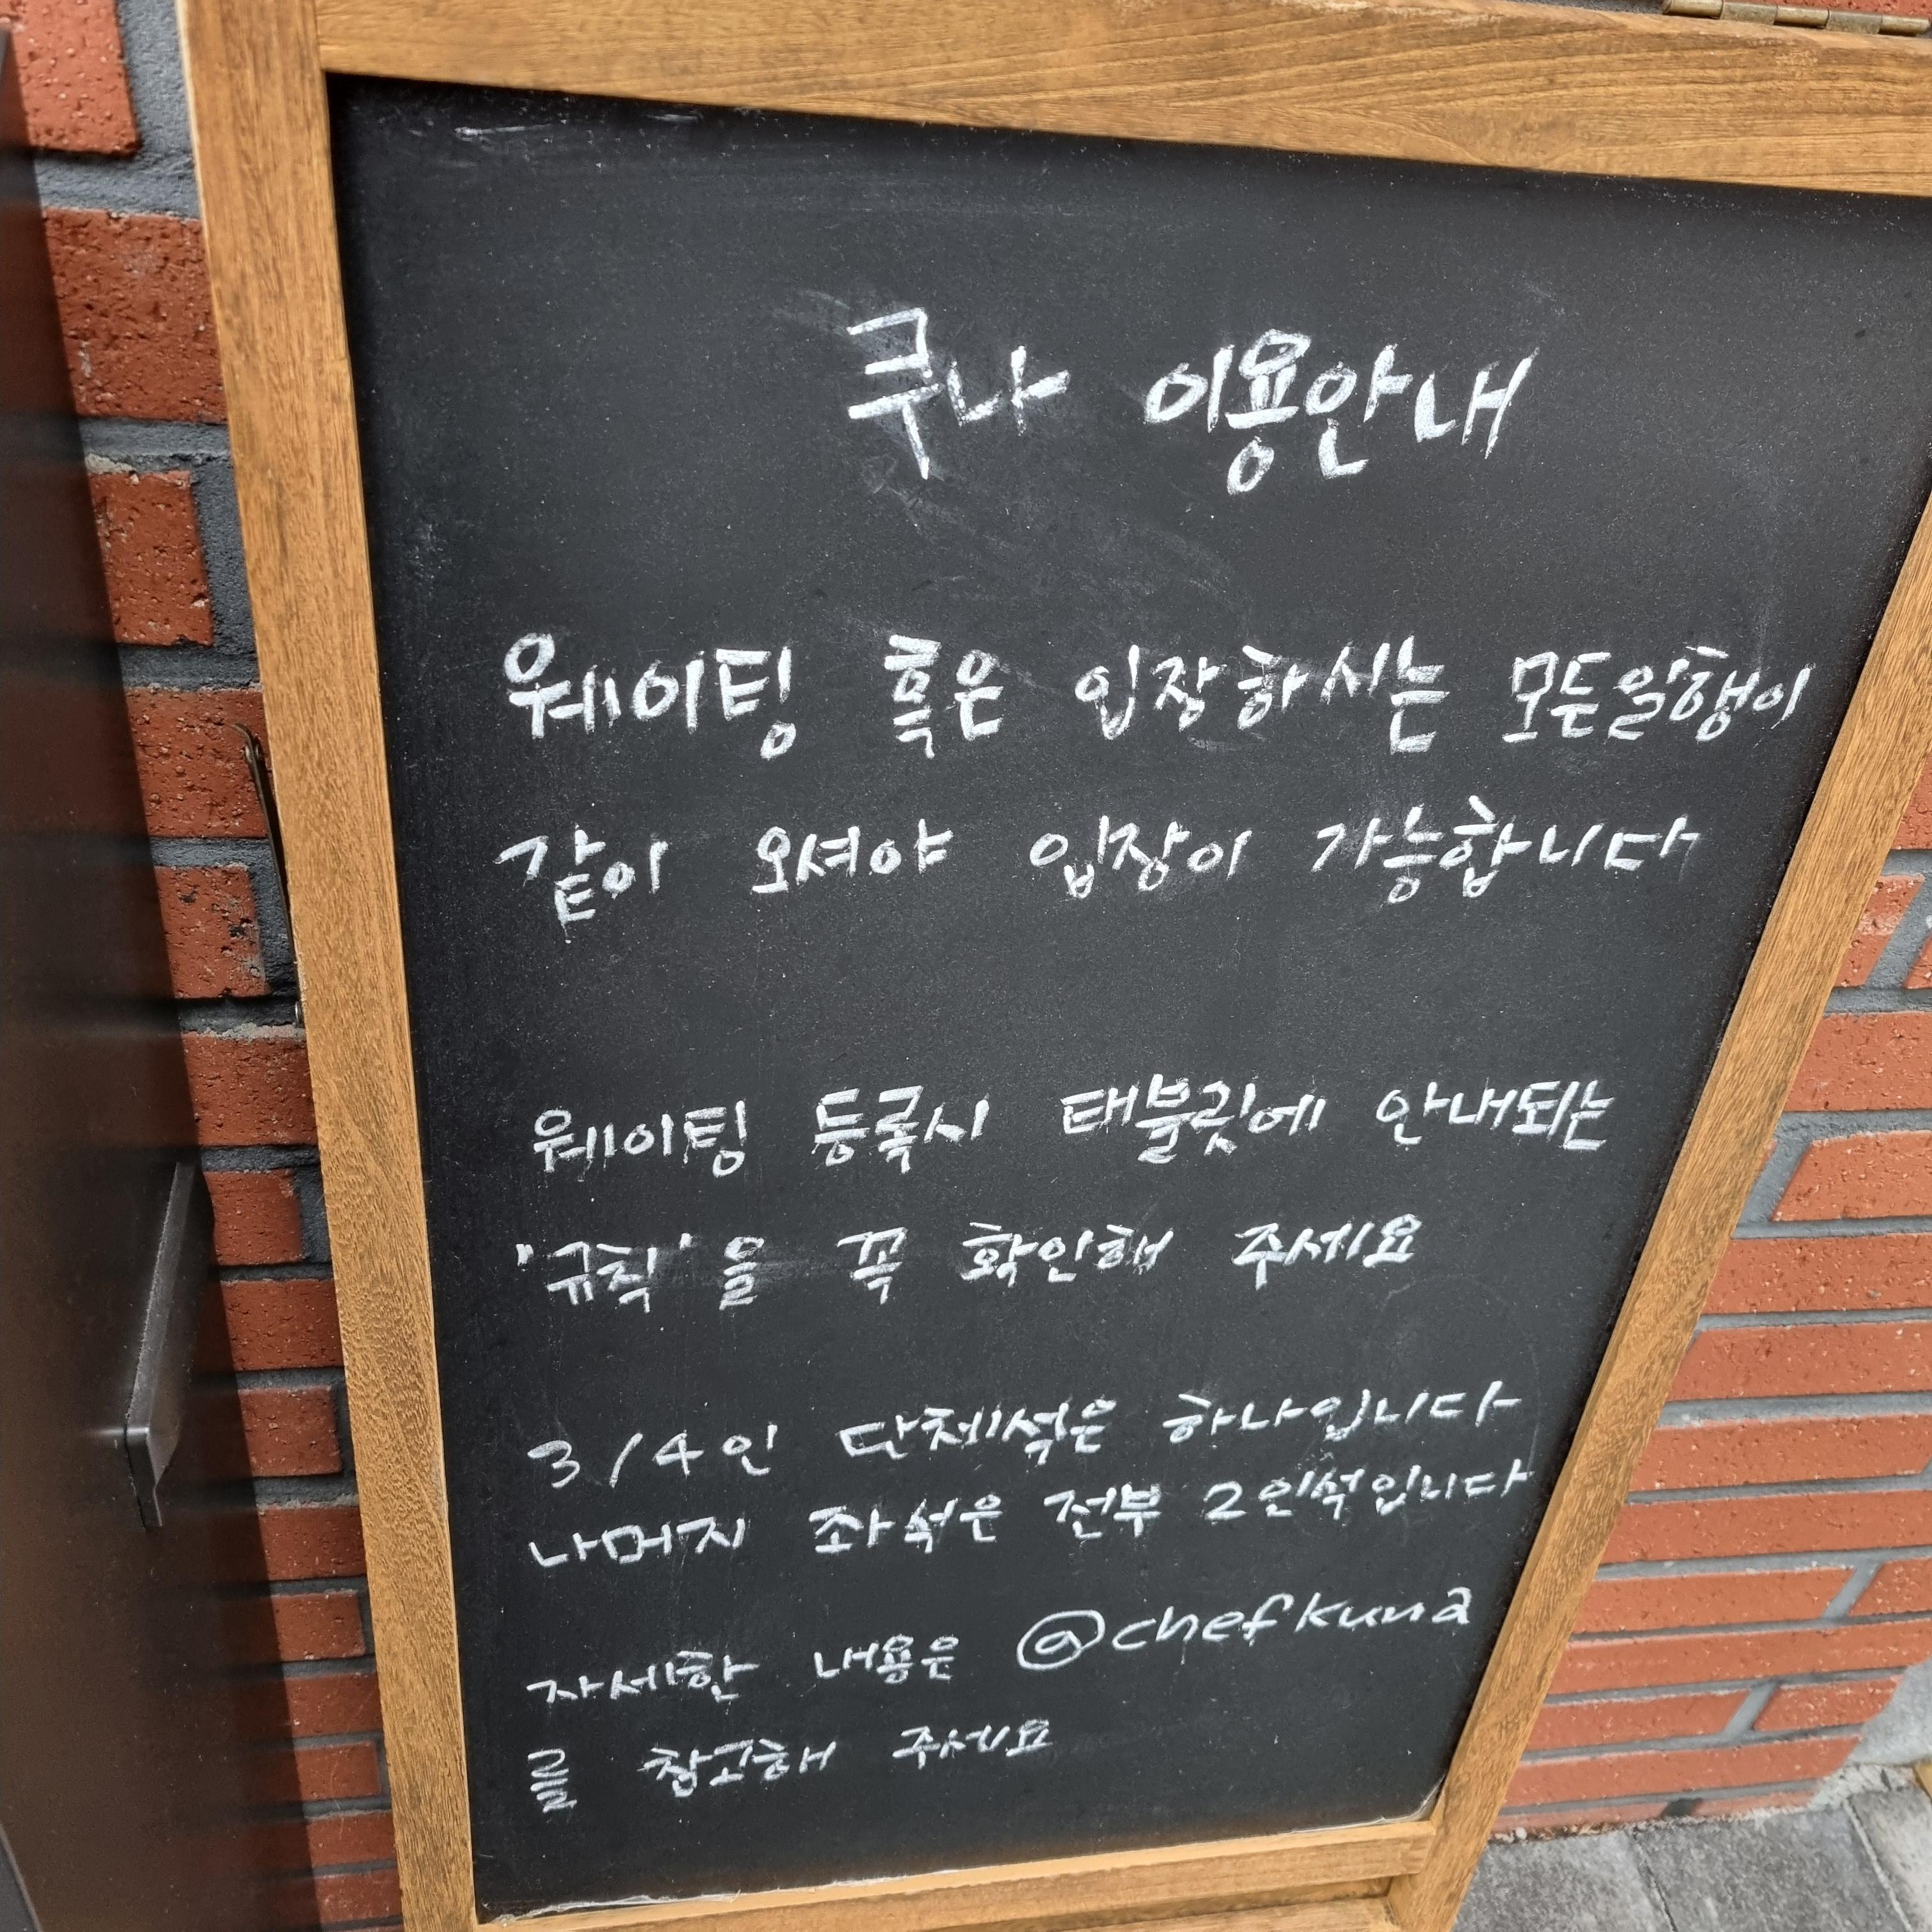 쿠나 이용안내
웨이팅 혹은 입장하시는 모든일행이
같이 오셔야 입장이 가능합니다
웨이팅 등록시 태블릿에 안내되는
'규칙'을 꼭 확인해 주세요
3/4인 단체석은 하나입니다
나머지 좌석은 전부 2인석입니다
자세한 내용은 @chefkuna
를 참고해 주세요